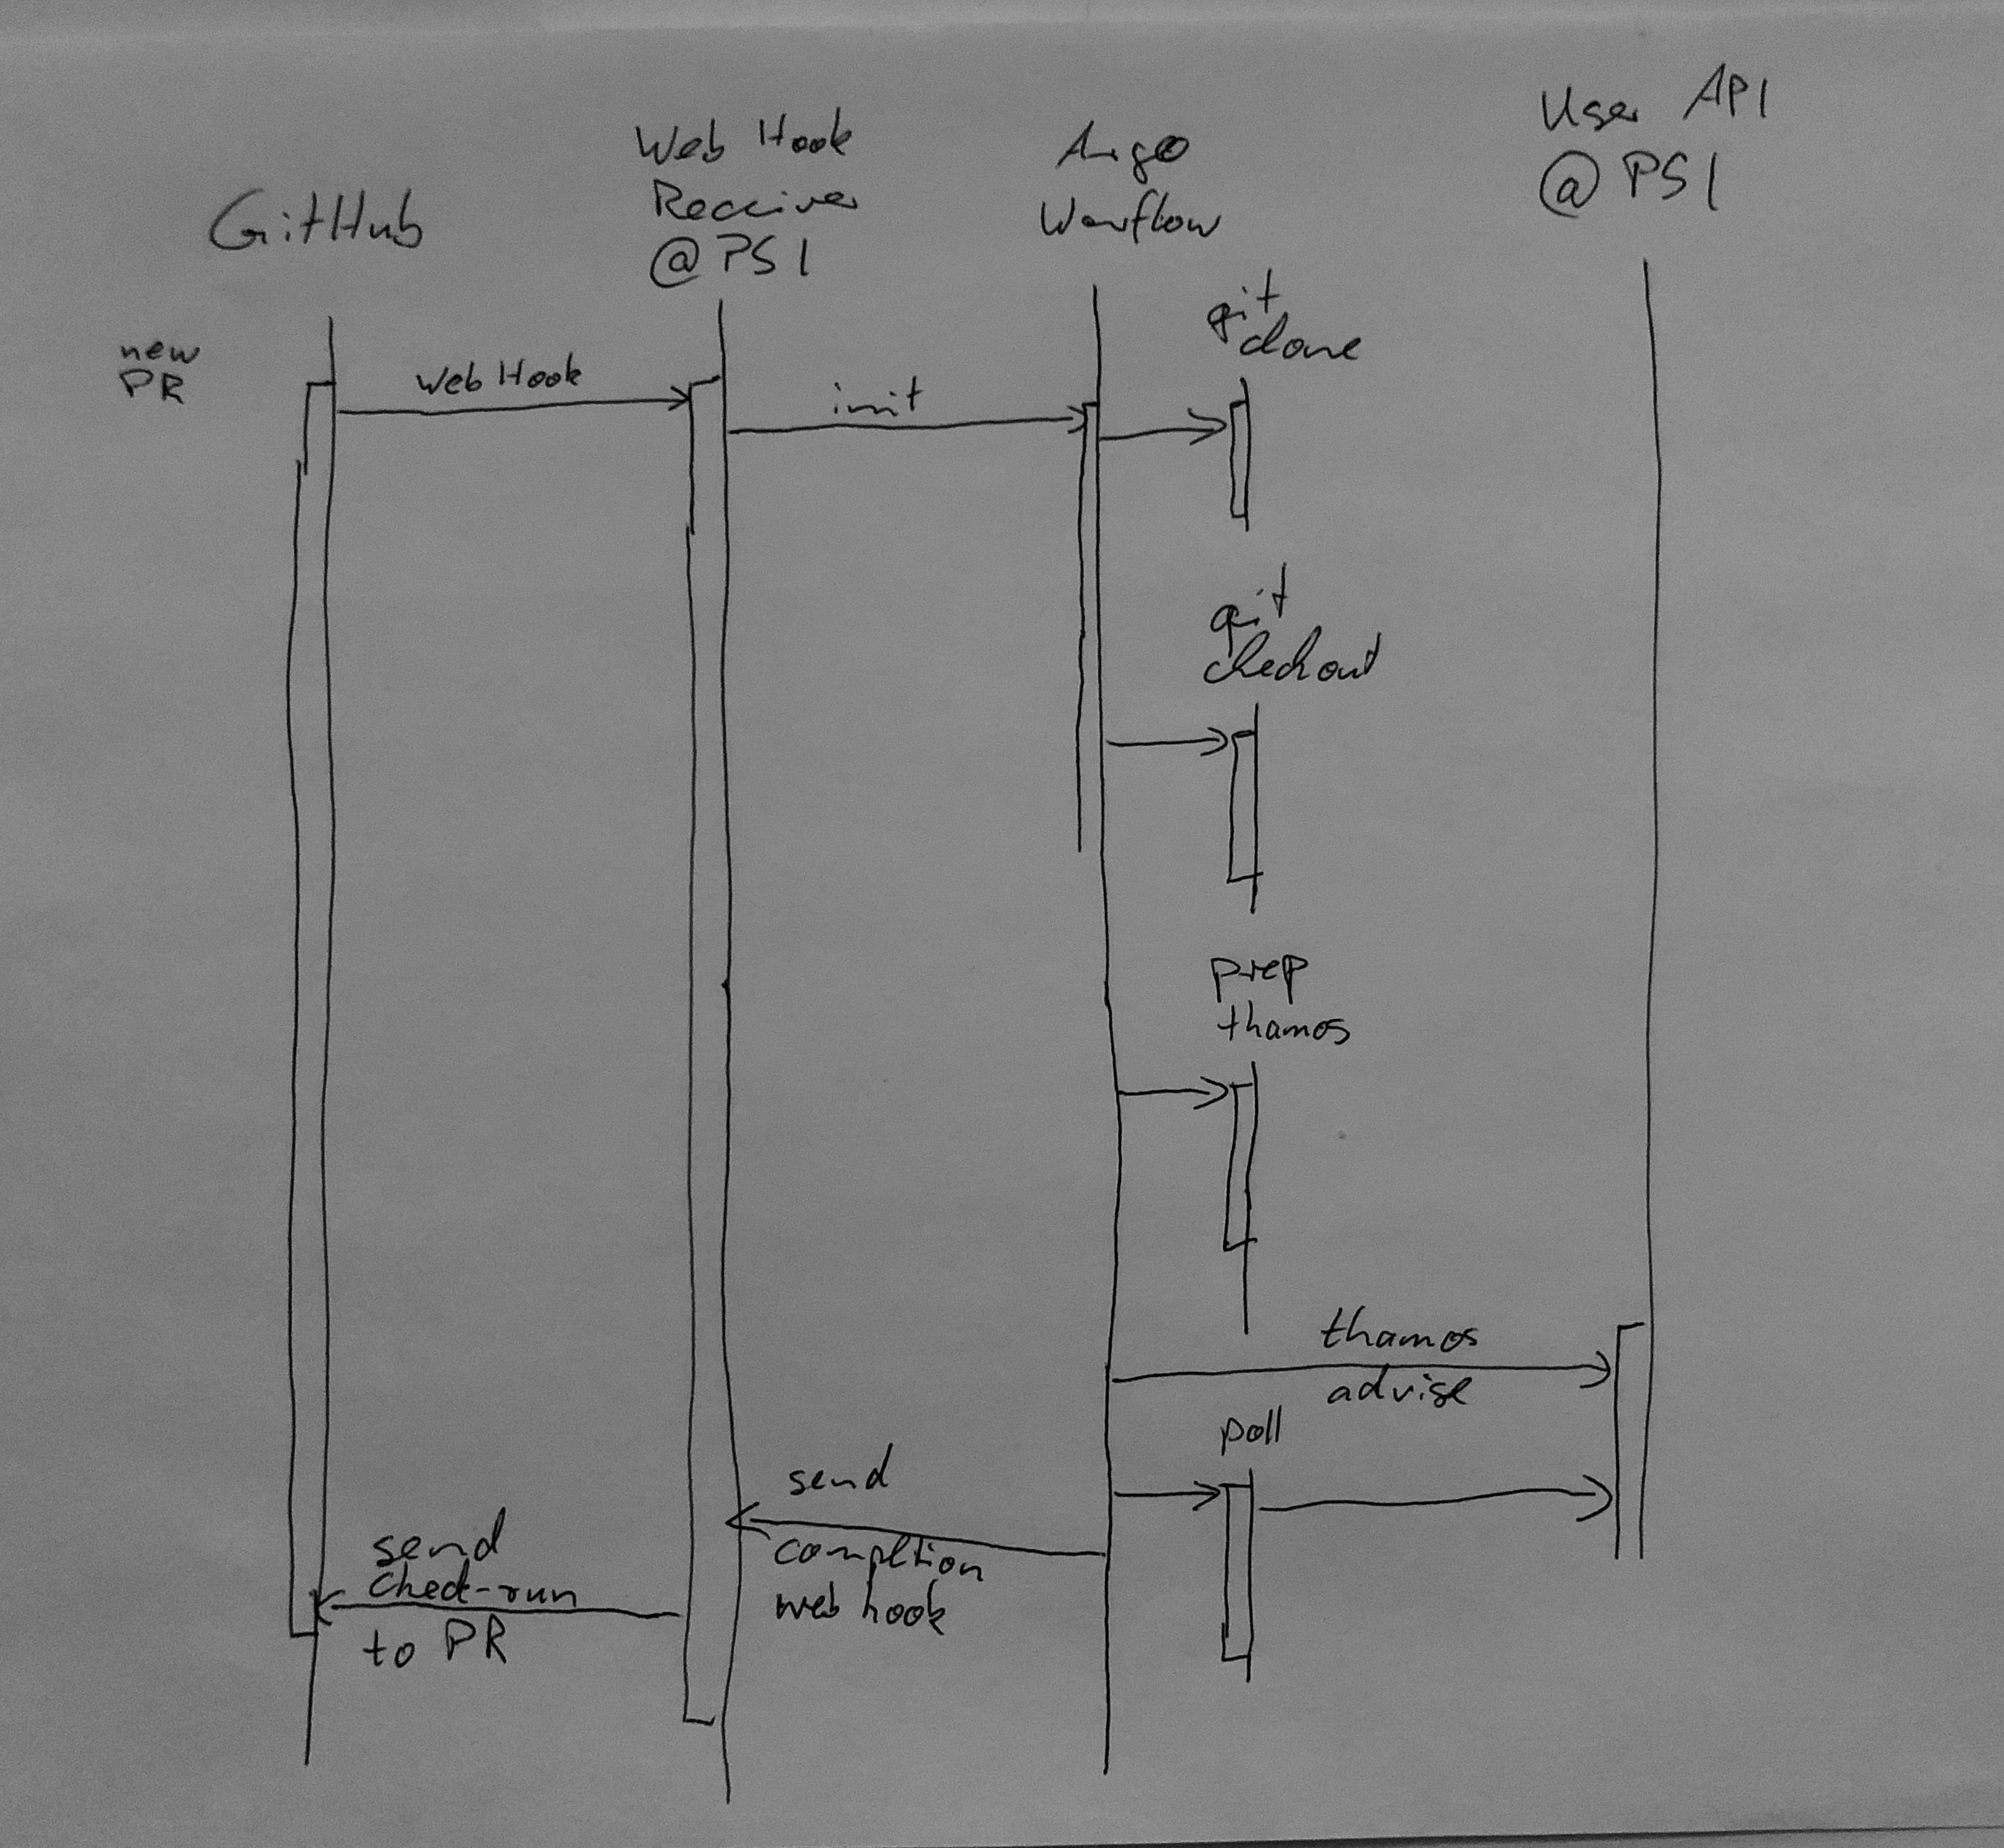 GitHub
Web Hook
Receiver
@PSI
Argo
Worflow
User API
@PSI
new
PR
Web Hook
init
git
clone
git
checkout
prep
thamos
thamos
advise
poll
send
compltion
web hook
send
check-run
to PR